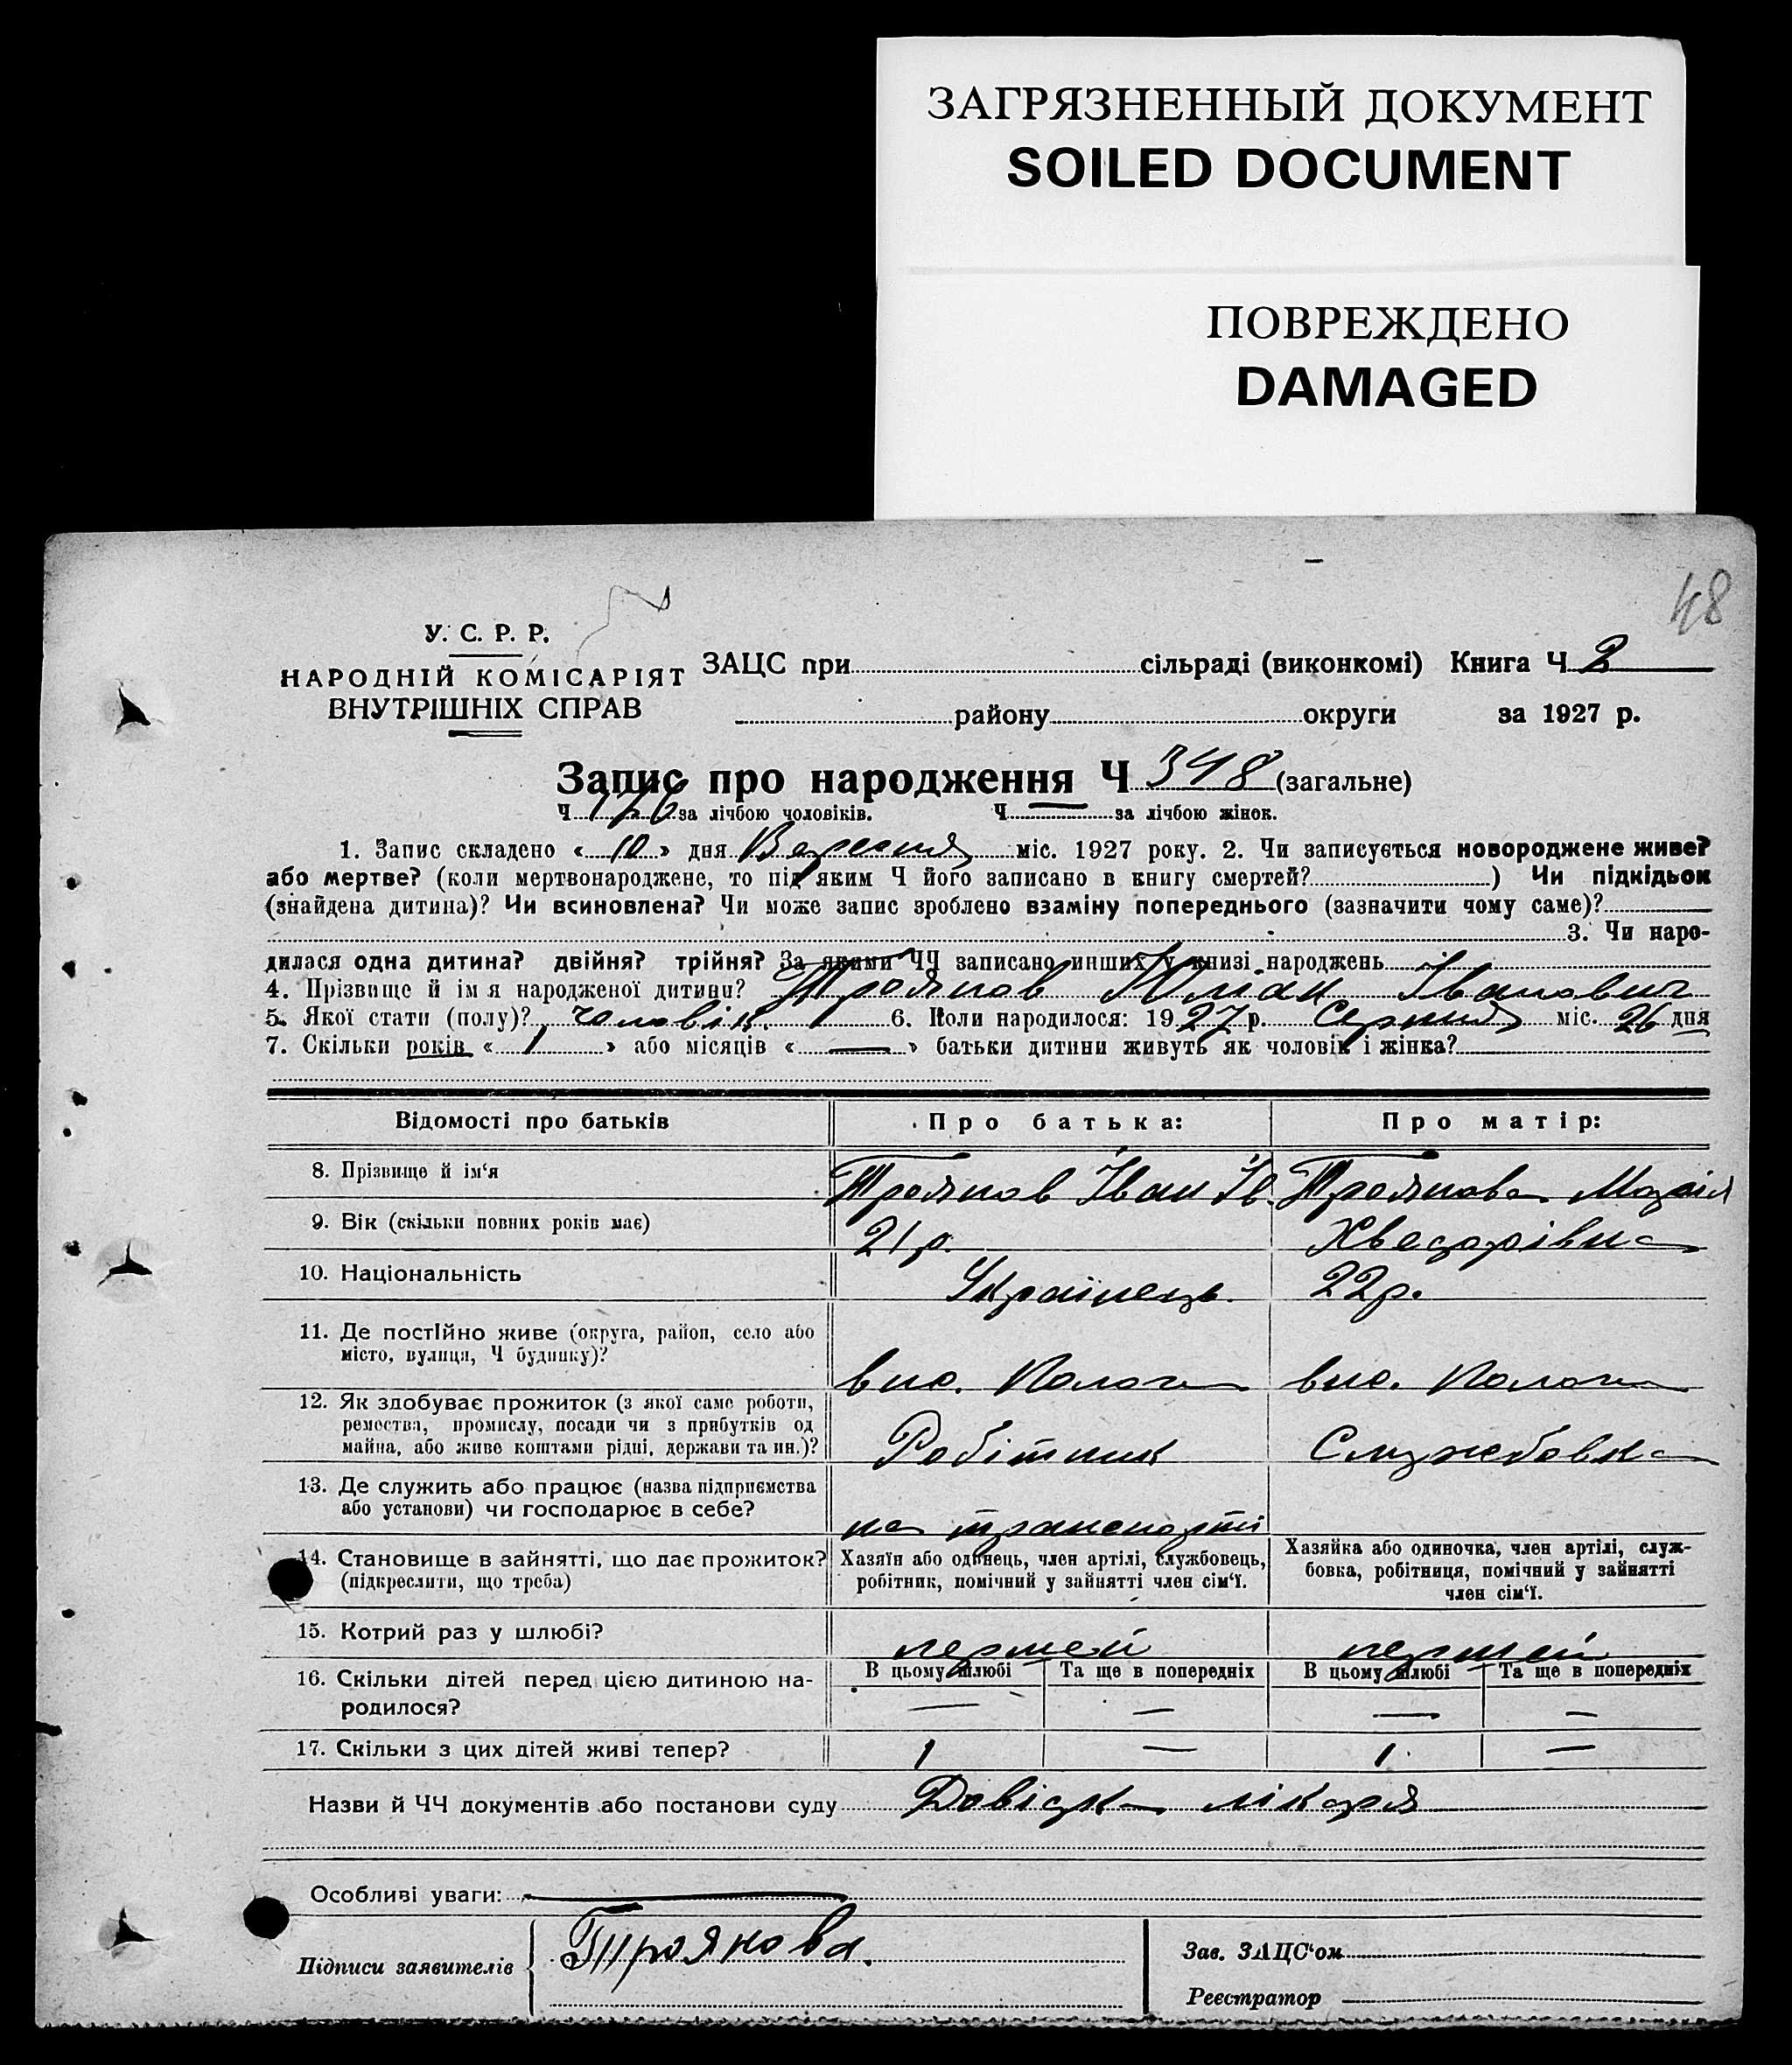 ЗАГРЯЗНЕННЫЙ ДОКУМЕНТ
SOILED DOCUMENT
ПОВРЕЖДЕНО
DAMAGED
48
У. С. Р. Р.
НАРОДНІЙ КОМІСАРІЯТ
ВНУТРІШНІХ СПРАВ
ЗАЦС при сільраді (виконкомі) Книга Ч 2
району округи за 1927 р.
Запис про народження Ч 348 (загальне)
Ч 176 за лічбою чоловіків. Ч — за лічбою жінок.
1. Запис складено « 10 » дня Вересня міс. 1927 року. 2. Чи записується новороджене живе?
або мертве? (коли мертвонароджене, то під яким Ч його записано в книгу смертей? ) Чи підкідьок
(знайдена дитина)? Чи всиновлена? Чи може запис зроблено взаміну попереднього (зазначити чому саме)?
3. Чи наро-
дилася одна дитина? двійня? трійня? За якими ЧЧ записано инших у книзі народжень
4. Прізвище й ім я народженої дитини? Троянов Юліан Іванович
5. Якої стати (полу)? чоловік. 6. Коли народилося: 1927 р. Серпня міс. 26 дня
7. Скільки років « 1 » або місяців « — » батьки дитини живуть як чоловік і жінка?
Відомості про батьків Про батька: Про матір:
8. Прізвище й ім‘я Троянов Іван Ів. Троянова Марія
9. Вік (скільки повних років має) 21 р. Хведорівна
10. Національність Українець. 22 р.
11. Де постійно живе (округа, район, село або
місто, вулиця, Ч будинку)? вис. Пологи вис. Пологи
12. Як здобуває прожиток (з якої саме роботи,
ремества, промислу, посади чи з прибутків од
майна, або живе коштами рідні, держави та ин.)? Робітник Службовка
13. Де служить або працює (назва підприємства
або установи) чи господарює в себе? на транспорті
14. Становище в зайнятті, що дає прожиток?
(підкреслити, що треба)
Хазяїн або одинець, член артілі, службовець,
робітник, помічний у зайнятті член сім‘ї.
Хазяйка або одиночка, член артілі, служ-
бовка, робітниця, помічний у зайнятті
член сім‘ї.
15. Котрий раз у шлюбі? першей першей
16. Скільки дітей перед цією дитиною на-
родилося?
В цьому шлюбі Та ще в попередніх В цьому шлюбі Та ще в попередніх
— — — —
17. Скільки з цих дітей живі тепер? 1 — 1 —
Назви й ЧЧ документів або постанови суду Довідка лікаря
Особливі уваги:
Підписи заявителів Троянова.
Зав. ЗАЦС‘ом
Реєстратор